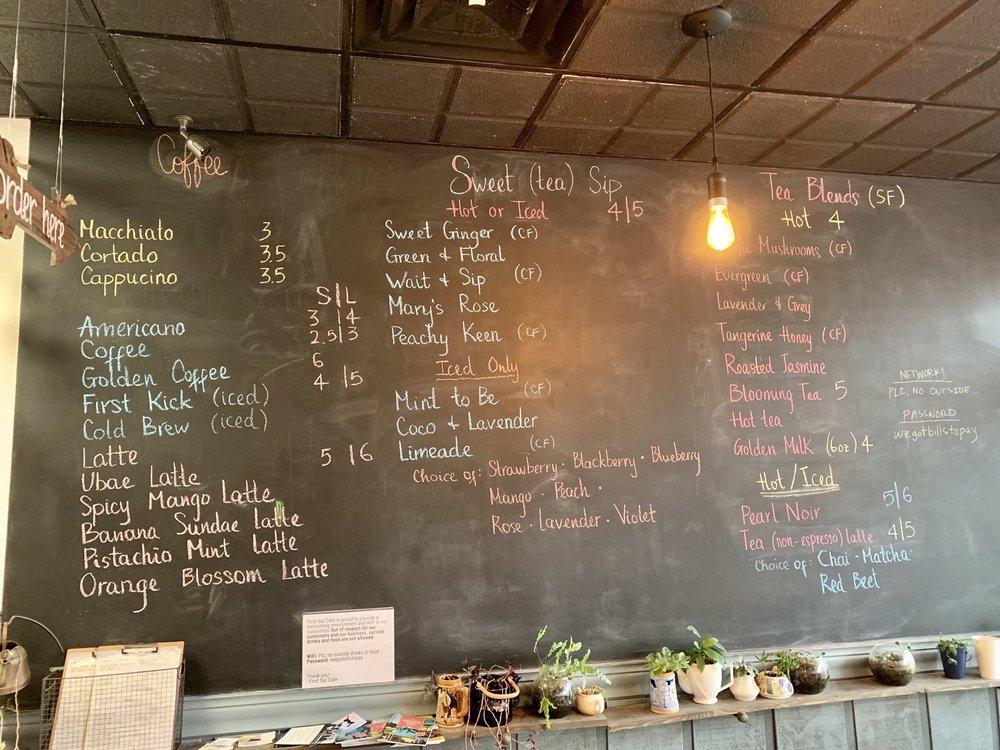 order here
Coffee
Macchiato 3
Cortado 3.5
Cappucino 3.5
S|L
Americano 3|4
Coffee 2.5|3
Golden Coffee 6
First Kick (iced) 4|5
Cold Brew (iced)
Latte 5|6
Ubae Latte
Spicy Mango Latte
Banana Sundae latte
Pistachio Mint Latte
Orange Blossom Latte
Sweet (tea) Sip
Hot or Iced 4|5
Sweet Ginger (CF)
Green & Floral
Wait & Sip (CF)
Mary's Rose
Peachy Keen (CF)
Iced Only
Mint to Be (CF)
Coco & Lavender
Limeade (CF)
Choice of: Strawberry · Blackberry · Blueberry
Mango · Peach ·
Rose · Lavender · Violet
Tea Blends (SF)
Hot 4
Mushrooms (CF)
Evergreen (CF)
Lavender & Grey
Tangerine Honey (CF)
Roasted Jasmine
Blooming Tea 5
Hot tea
Golden Milk (6oz) 4
Hot/Iced
Pearl Noir 5/6
Tea (non-espresso) latte 4/5
Choice of: Chai · Matcha ·
Red Beet
NETWORK:
PLZ, NO OUTSIDE..
PASSWORD
wegotbillstopay
First Sip Cafe is proud to provide a
welcoming environment and Wifi to our
customers. Out of respect for our
customers and our business, outside
drinks and food are not allowed.
WiFi: Plz, no outside drinks or food
Password: wegotbillstopay
Thank you!
First Sip Cafe